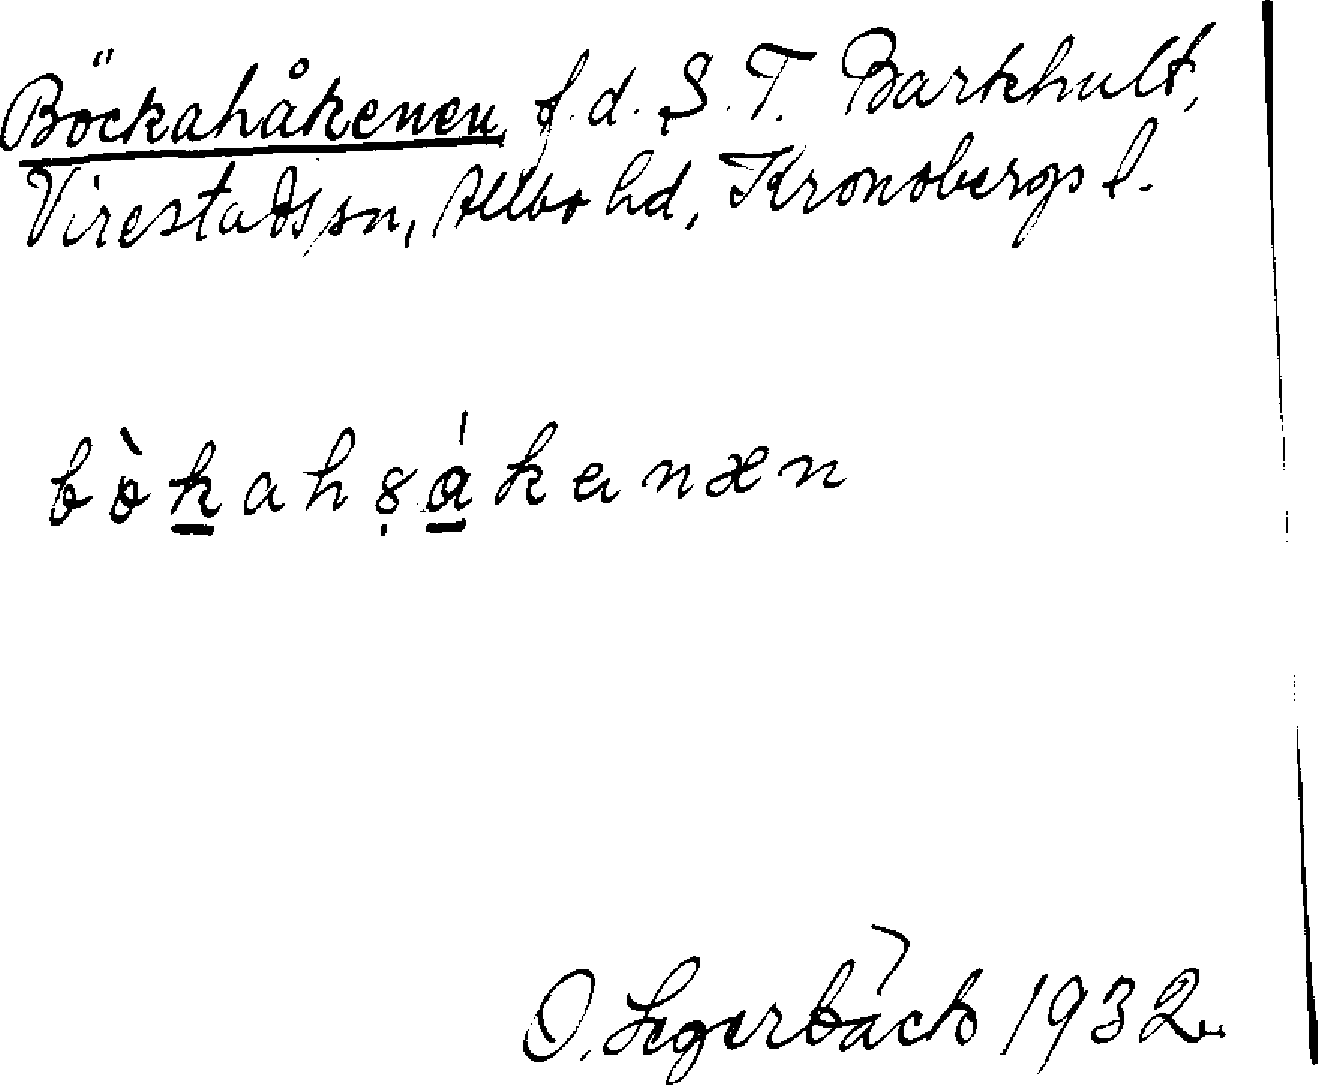 Böckahåkenen, f.d. S.T. Barkhult,
Virestads sn, Allbo hd, Kronobergs l.
bòkahạákenæn
O. Segerbäck 1932